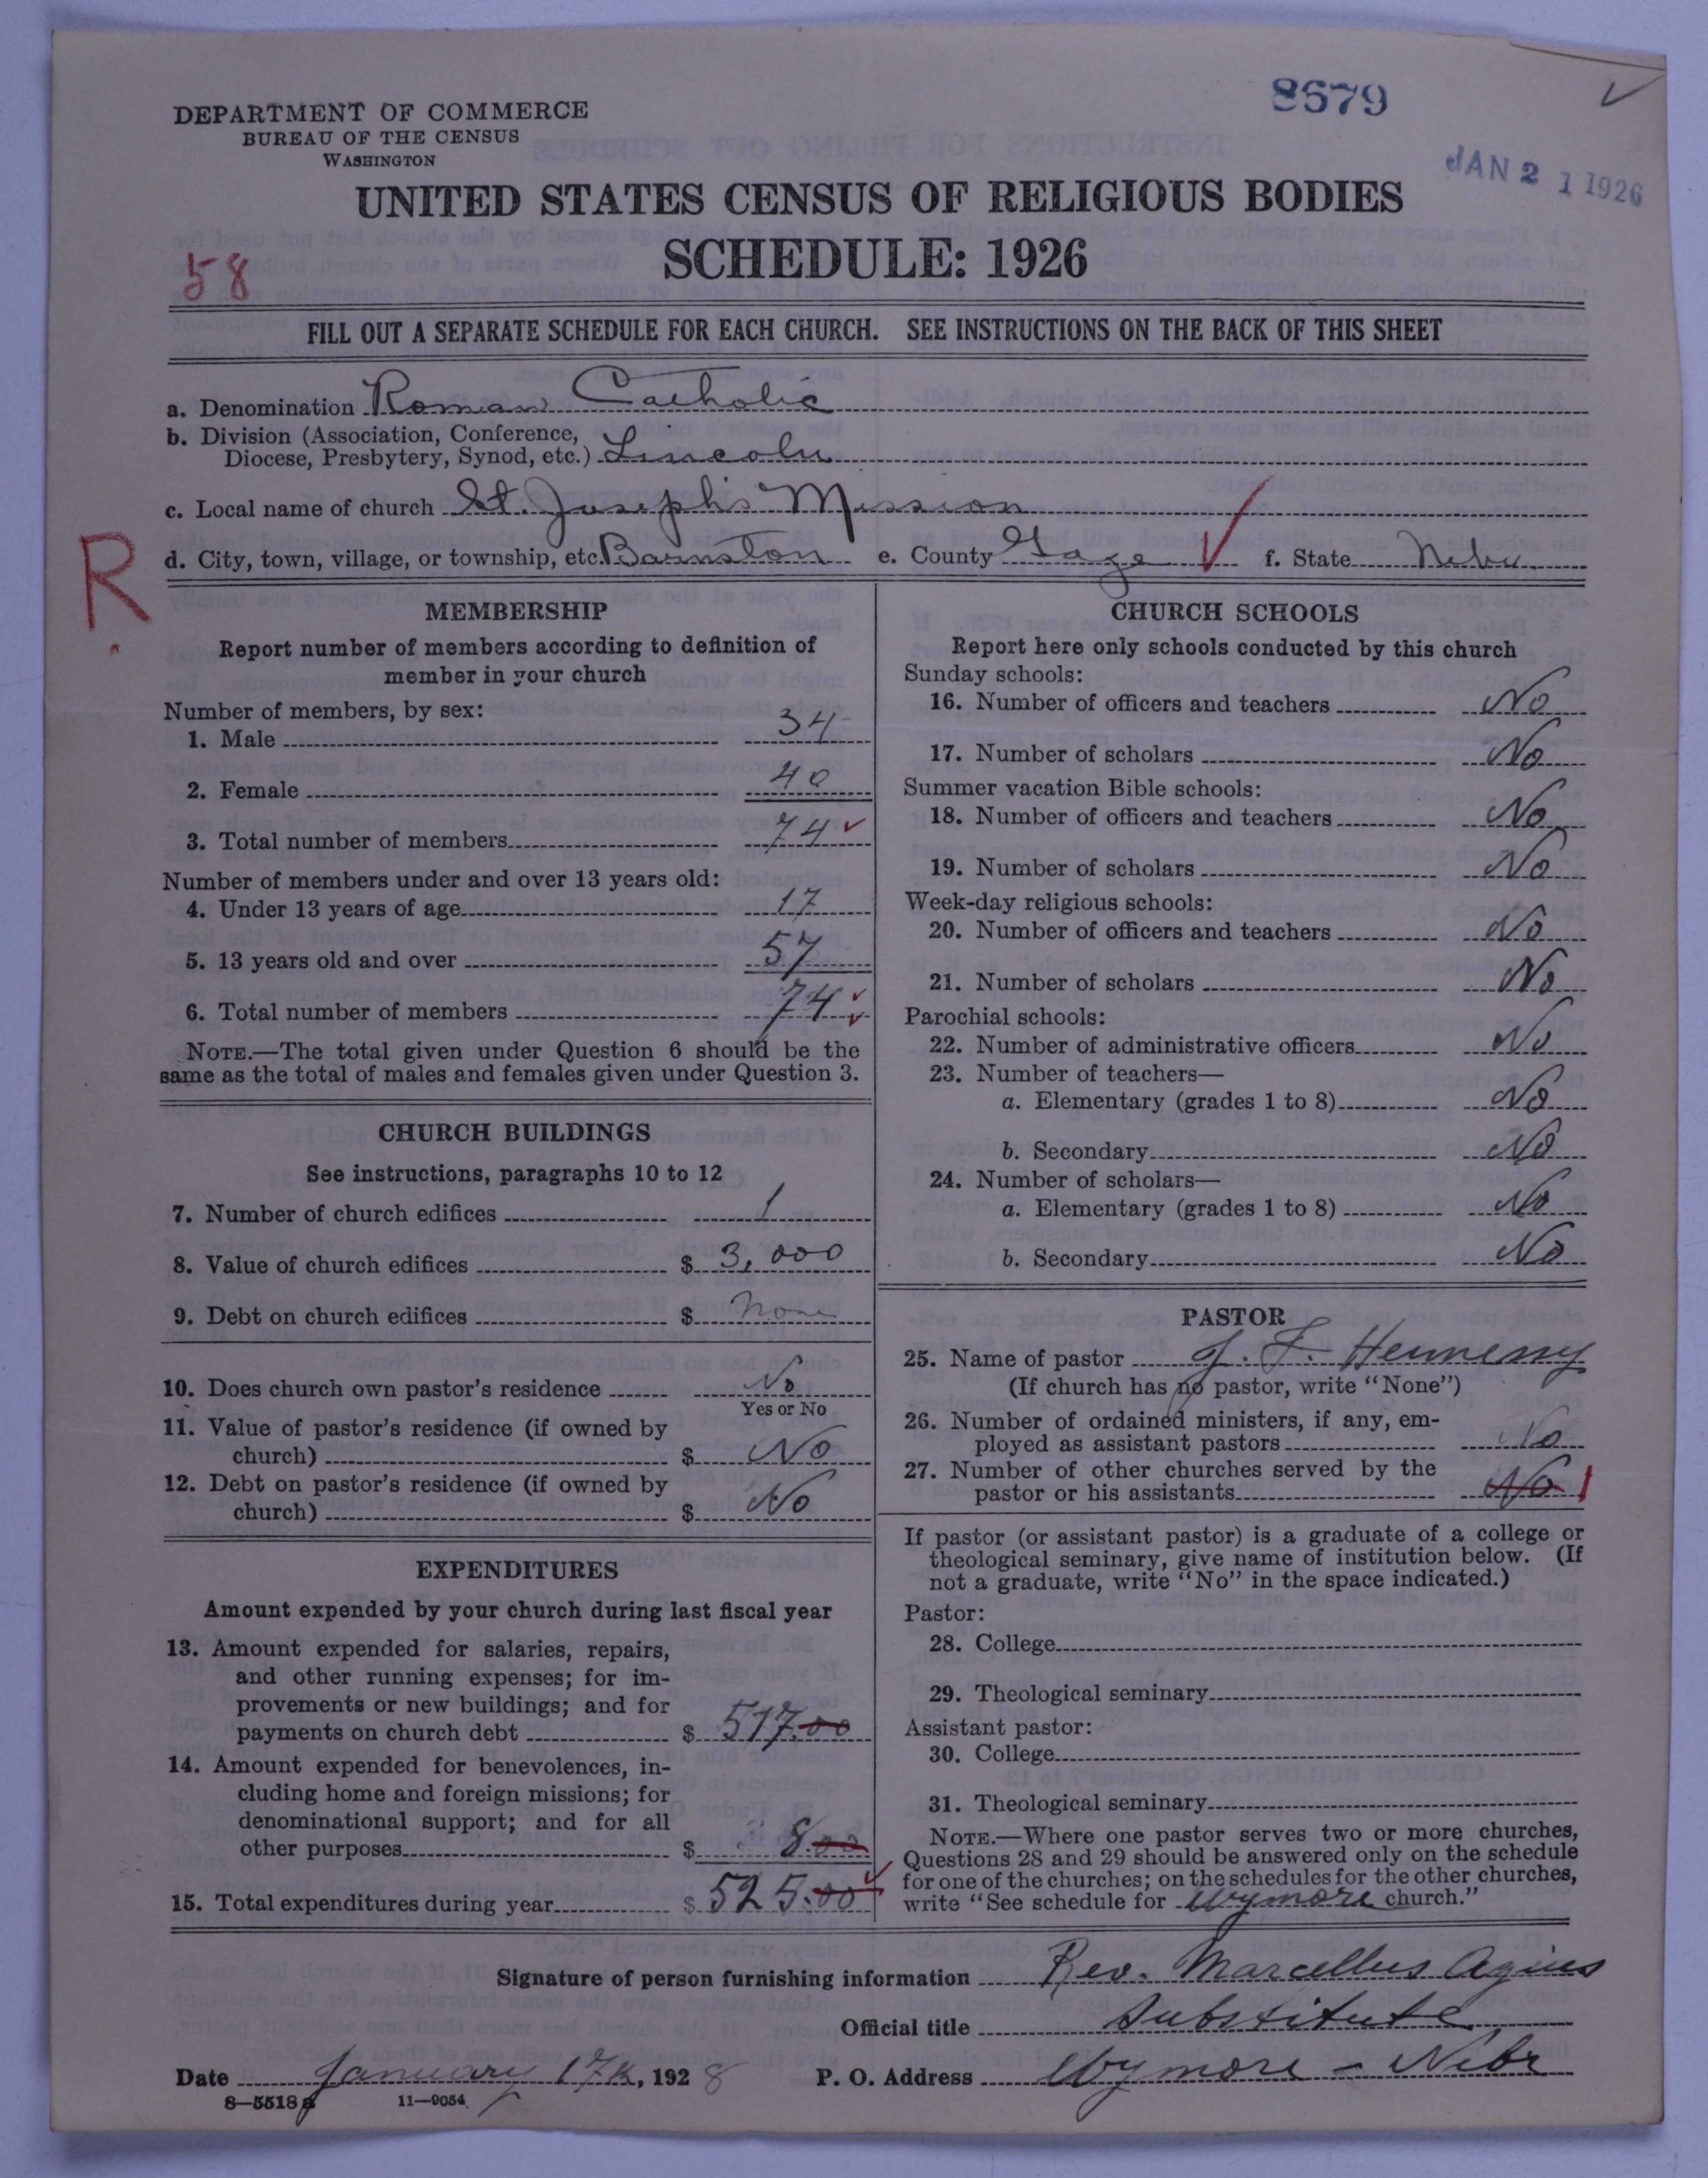 8679
DEPARTMENT OF COMMERCE
BUREAU OF THE CENSUS
WASHINGTON
JAN 2 1 1926
UNITED STATES CENSUS OF RELIGIOUS BODIES
SCHEDULE: 1926
58
FILL OUT A SEPARATE SCHEDULE FOR EACH CHURCH. SEE INSTRUCTIONS ON THE BACK OF THIS SHEET
a. Denomination Roman Catholic
b. Division (Association, Conference,
Diocese, Presbytery, Synod, etc.) Lincoln
c. Local name of church St. Joseph's Mission
d. City, town, village, or township, etc. Barnston e. County Gage f. State Nebr.
R
MEMBERSHIP
Report number of members according to definition of
member in your church
Number of members, by sex:
1. Male 34
2. Female 40
3. Total number of members 74
Number of members under and over 13 years old:
4. Under 13 years of age 17
5. 13 years old and over 57
6. Total number of members 74
NOTE.—The total given under Question 6 should be the
same as the total of males and females given under Question 3.
CHURCH BUILDINGS
See instructions, paragraphs 10 to 12
7. Number of church edifices 1
8. Value of church edifices $ 3,000
9. Debt on church edifices $ none
10. Does church own pastor's residence No
Yes or No
11. Value of pastor's residence (if owned by
church) $ No
12. Debt on pastor's residence (if owned by
church) $ No
EXPENDITURES
Amount expended by your church during last fiscal year
13. Amount expended for salaries, repairs,
and other running expenses; for im-
provements or new buildings; and for
payments on church debt $ 517.00
14. Amount expended for benevolences, in-
cluding home and foreign missions; for
denominational support; and for all
other purposes $ 8.00
15. Total expenditures during year $ 525.00
CHURCH SCHOOLS
Report here only schools conducted by this church
Sunday schools:
16. Number of officers and teachers No
17. Number of scholars No
Summer vacation Bible schools:
18. Number of officers and teachers No
19. Number of scholars No
Week-day religious schools:
20. Number of officers and teachers No
21. Number of scholars No
Parochial schools:
22. Number of administrative officers No
23. Number of teachers—
a. Elementary (grades 1 to 8) No
b. Secondary No
24. Number of scholars—
a. Elementary (grades 1 to 8) No
b. Secondary No
PASTOR
25. Name of pastor J. F. Hennessy
(If church has no pastor, write "None")
26. Number of ordained ministers, if any, em-
ployed as assistant pastors No
27. Number of other churches served by the
pastor or his assistants No 1
If pastor (or assistant pastor) is a graduate of a college or
theological seminary, give name of institution below. (If
not a graduate, write "No" in the space indicated.)
Pastor:
28. College
29. Theological seminary
Assistant pastor:
30. College
31. Theological seminary
NOTE.—Where one pastor serves two or more churches,
Questions 28 and 29 should be answered only on the schedule
for one of the churches; on the schedules for the other churches,
write "See schedule for Wymore church."
Signature of person furnishing information Rev. Marcellus Agius
Official title Substitute
Date January 17th, 1928 P. O. Address Wymore - Nebr
8—5518 a 11—9054